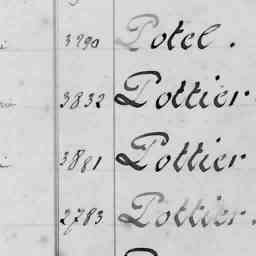 3990 Potel.
3832 Pottier
3881 Pottier
2783 Pottier.